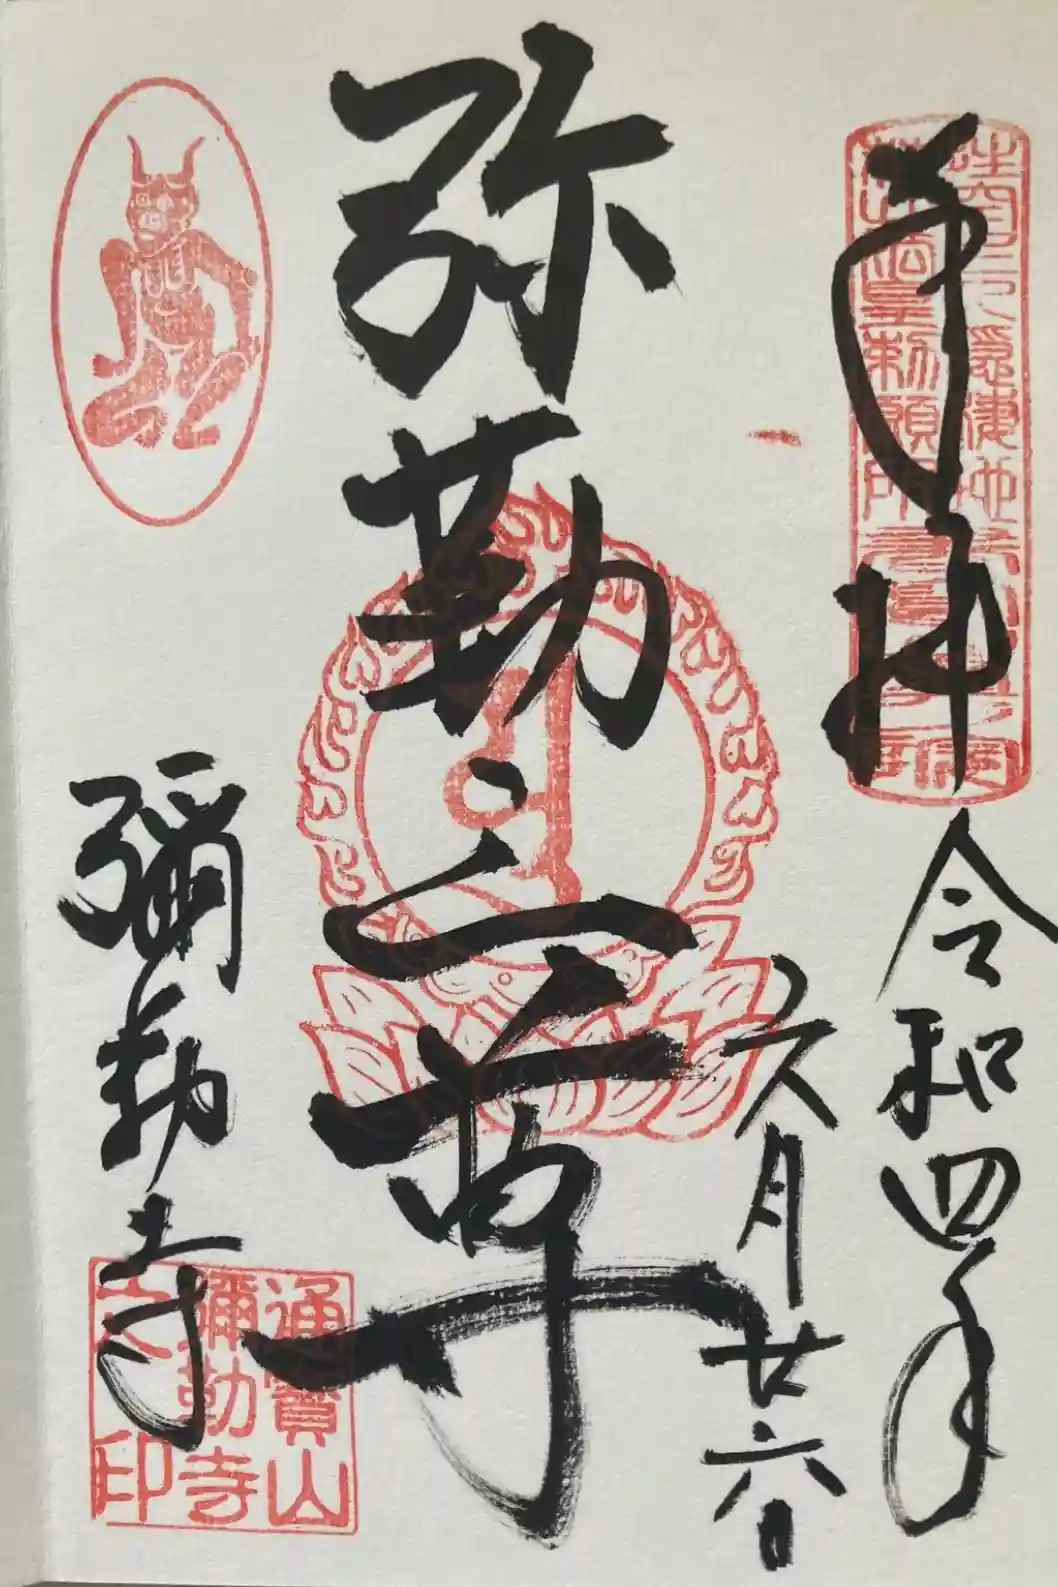 奉拝
令和四年
六月廿六日
弥勒三尊
彌勒寺
通寶山
彌勒寺
之印